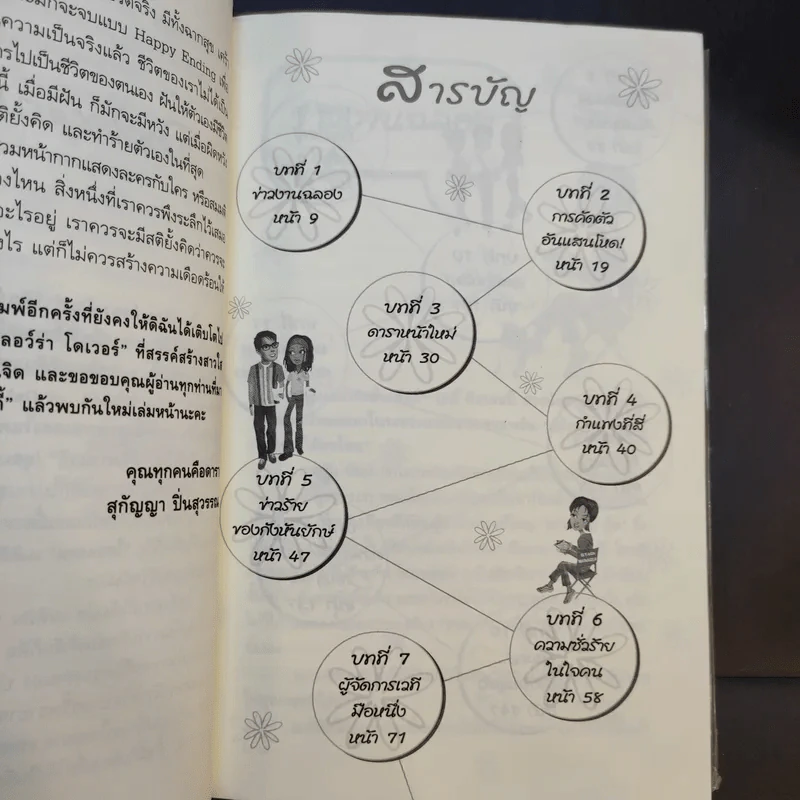 มักจะจบแบบ Happy Ending
ความเป็นจริงแล้ว ชีวิตของเราไม่ได้เป็น
ไปเป็นชีวิตของตนเอง ฝันให้ตัวเองมีชีวิต
นี้ เมื่อมีฝัน ก็มักจะมีหวัง แต่เมื่อผิดหวัง
ยั้งคิด และทำร้ายตัวเองในที่สุด
หน้ากากแสดงละครกับใคร หรือสมมติ
ไหน สิ่งหนึ่งที่เราควรพึงระลึกไว้เสมอ
อะไรอยู่ เราควรจะมีสติยั้งคิดว่าควรจะ
ไร แต่ก็ไม่ควรสร้างความเดือดร้อนให้
พิมพ์อีกครั้งที่ยังคงให้ดิฉันได้เติบโตไป
ลอว์ร่า โดเวอร์” ที่สรรค์สร้างสาวใส
เจิด และขอขอบคุณผู้อ่านทุกท่านที่มา
แล้วพบกันใหม่เล่มหน้านะคะ
คุณทุกคนคือดารา
สุกัญญา ปิ่นสุวรรณ
สารบัญ
บทที่ 1
ข่าวงานฉลอง
หน้า 9
บทที่ 2
การคัดตัว
อันแสนโหด!
หน้า 19
บทที่ 3
ดาราหน้าใหม่
หน้า 30
บทที่ 4
กำแพงที่สี่
หน้า 40
บทที่ 5
ข่าวร้าย
ของกังหันยักษ์
หน้า 47
บทที่ 6
ความชั่วร้าย
ในใจคน
หน้า 58
บทที่ 7
ผู้จัดการเวที
มือหนึ่ง
หน้า 71